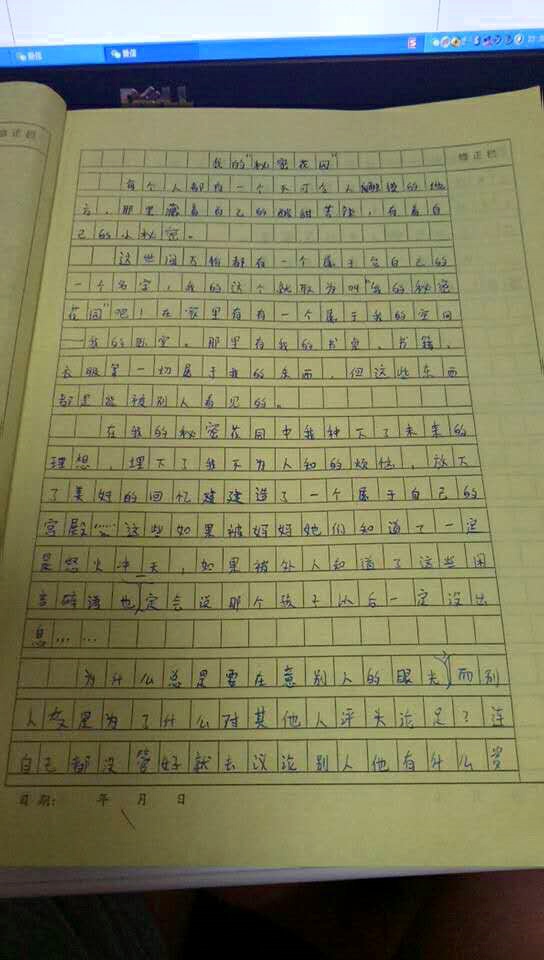 微信
微信
DELL
修正栏
修正栏
我的"秘密花园"
每个人都有一个不可令人触摸的地
方，那里藏着自己的酸甜苦辣，有着自
己的小秘密。
这世间万物都有一个属于自己的
一个名字，我的这个就取为叫"我的秘密
花园"吧！在家里有有一个属于我的空间
——我的卧室。那里有我的书桌、书籍、
衣服等一切属于我的东西，但这些东西
都是能被别人看见的。
在我的秘密花园中我种下了未来的
理想，埋下了我不为人知的烦恼，放下
了美好的回忆建建造了一个属于自己的
宫殿……这些如果被妈妈她们知道了一定
是怒火冲天，如果被外人知道了这些闲
言碎语也一定会说那个孩子以后一定没出
息……
为什么总是要在意别人的眼光，而别
人又是为了什么对其他人评头论足？连
自己都没管好就去议论别人他有什么资
日期： 年 月 日